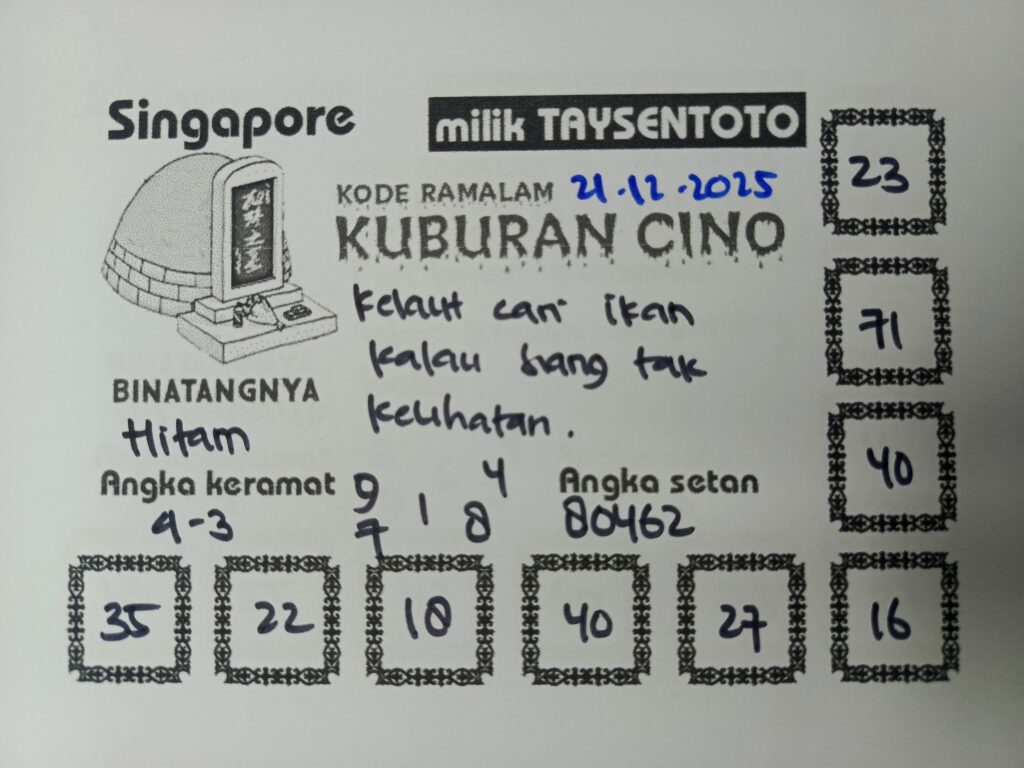 Singapore
milik TAYSENTOTO
KODE RAMALAM 21.12.2025
KUBURAN CINO
Kelaut cari ikan
kalau siang tak
kelihatan.
BINATANGNYA
Hitam
Angka keramat
9-3
9 4
7 1 8
Angka setan
80462
23
71
40
35 22 18 40 27 16